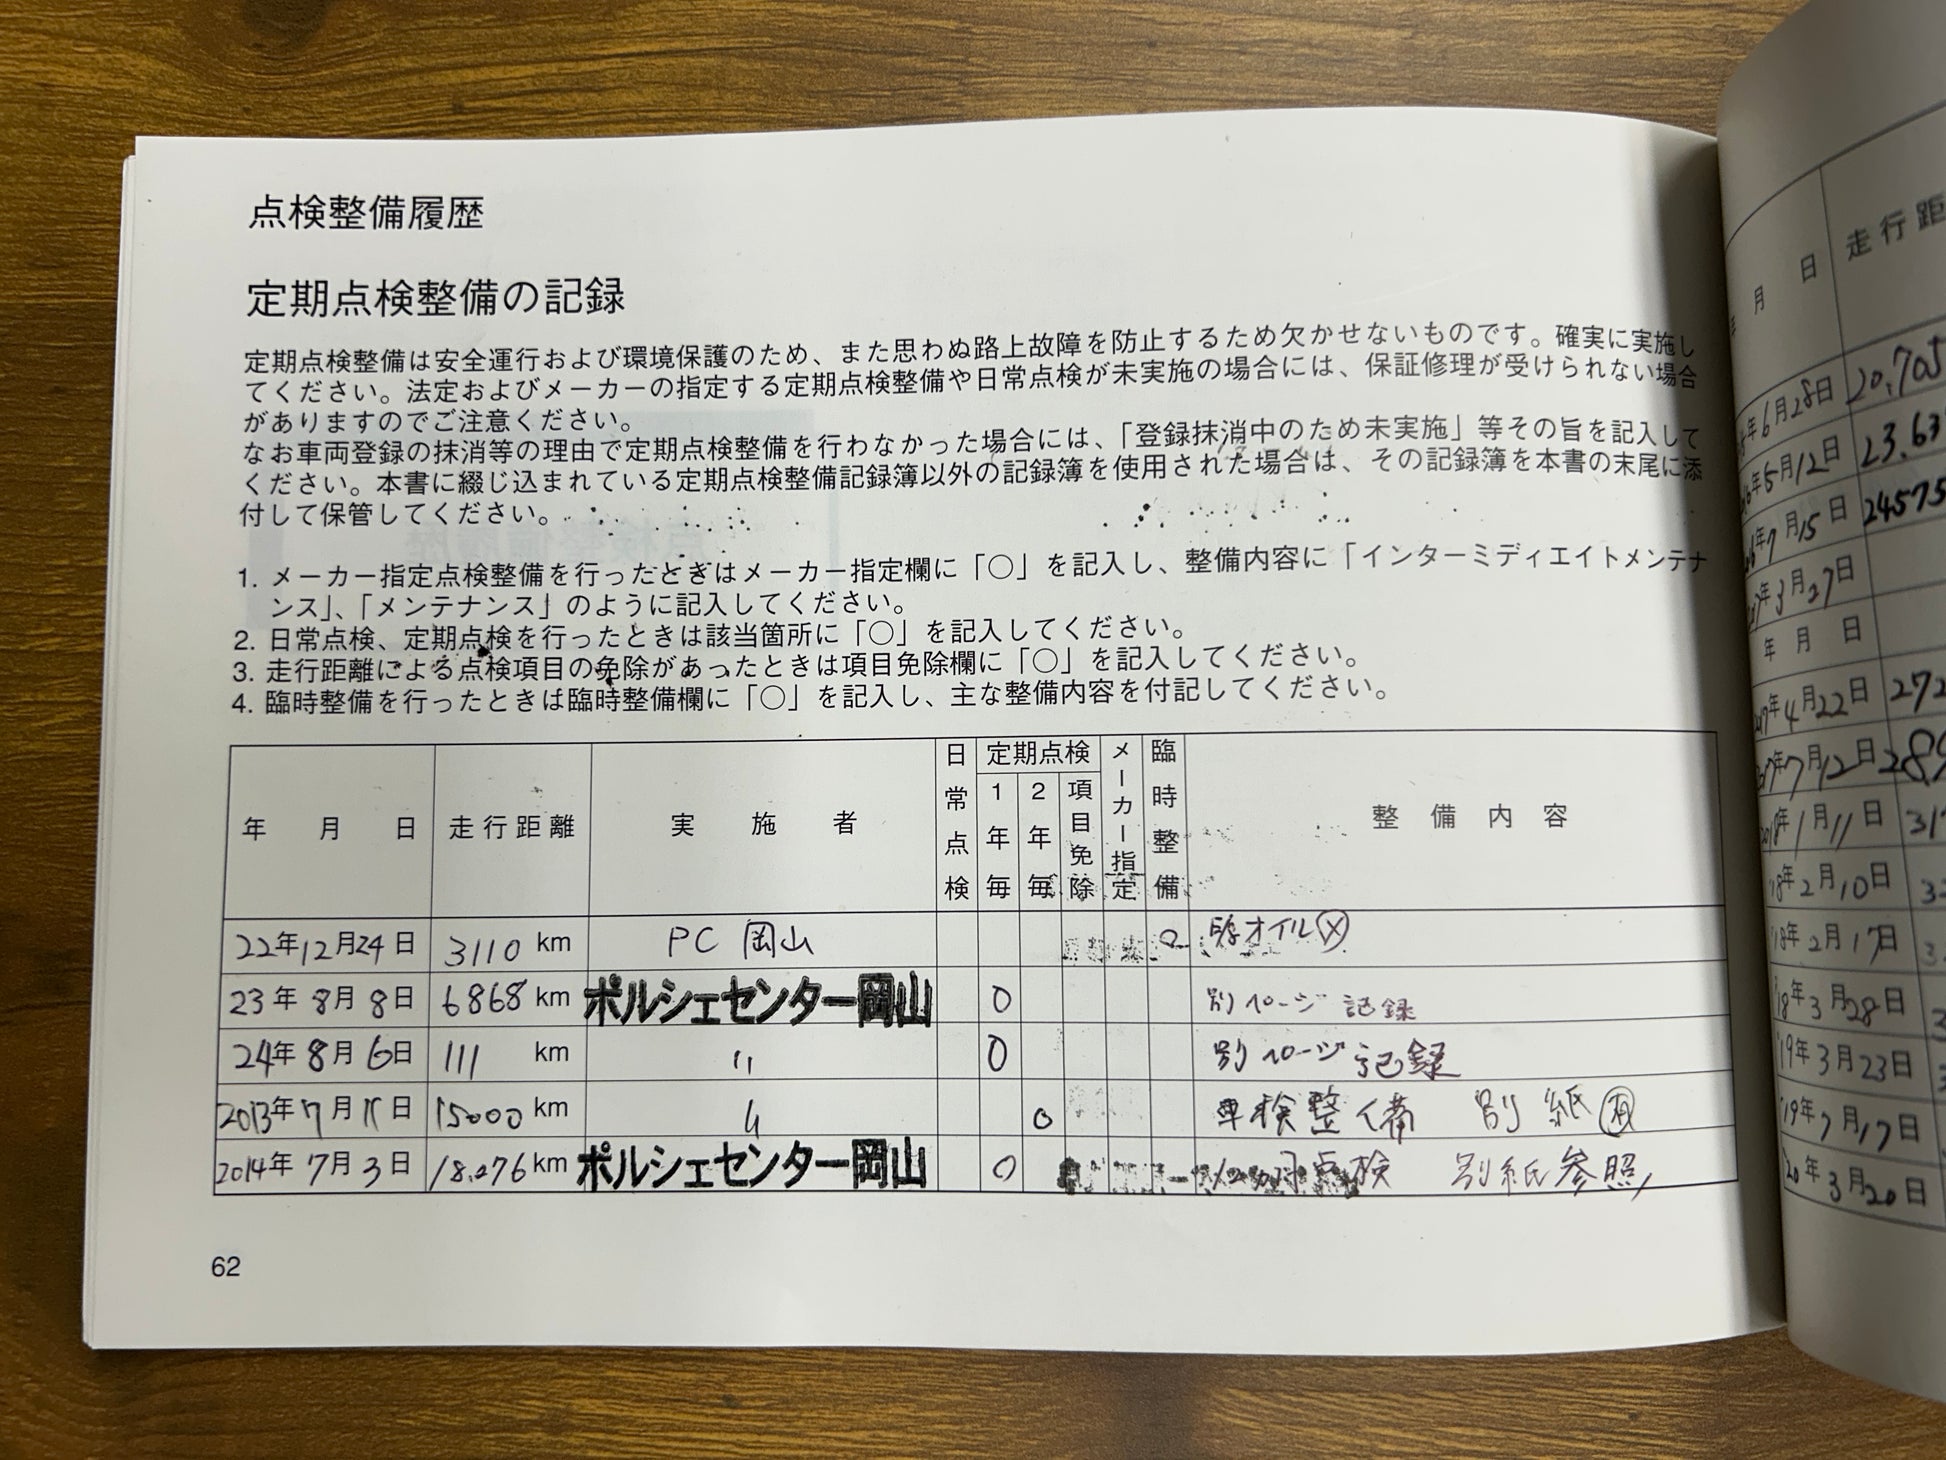 点検整備履歴
定期点検整備の記録
定期点検整備は安全運行および環境保護のため、また思わぬ路上故障を防止するため欠かせないものです。確実に実施し
てください。法定およびメーカーの指定する定期点検整備や日常点検が未実施の場合には、保証修理が受けられない場合
がありますのでご注意ください。
なお車両登録の抹消等の理由で定期点検整備を行わなかった場合には、「登録抹消中のため未実施」等その旨を記入して
ください。本書に綴じ込まれている定期点検整備記録簿以外の記録簿を使用された場合は、その記録簿を本書の末尾に添
付して保管してください。
1. メーカー指定点検整備を行ったときはメーカー指定欄に「○」を記入し、整備内容に「インターミディエイトメンテナ
ンス」、「メンテナンス」のように記入してください。
2. 日常点検、定期点検を行ったときは該当箇所に「○」を記入してください。
3. 走行距離による点検項目の免除があったときは項目免除欄に「○」を記入してください。
4. 臨時整備を行ったときは臨時整備欄に「○」を記入し、主な整備内容を付記してください。
年 月 日 走行距離 実施者 日常点検 定期点検 1年毎 2年毎 項目免除 メーカー指定 臨時整備 整備内容
22年12月24日 3110 km PC 岡山 ○ オイル
23年8月8日 6868 km ポルシェセンター岡山 ○ 別ページ 記録
24年8月6日 111 km 〃 ○ 別ページ 記録
2013年7月11日 15000 km 〃 ○ 車検整備 別紙
2014年7月3日 18.276 km ポルシェセンター岡山 ○ 点検 別紙参照
62
月 日 走行距
年6月28日 20,705
年5月12日 23.63
年7月15日 24575
年3月27日
年 月 日
年4月22日 272
年7月12日 289
2018年1月11日 317
'18年2月10日
'18年2月17日
'18年3月28日
'19年3月23日
'19年7月17日
'20年3月20日